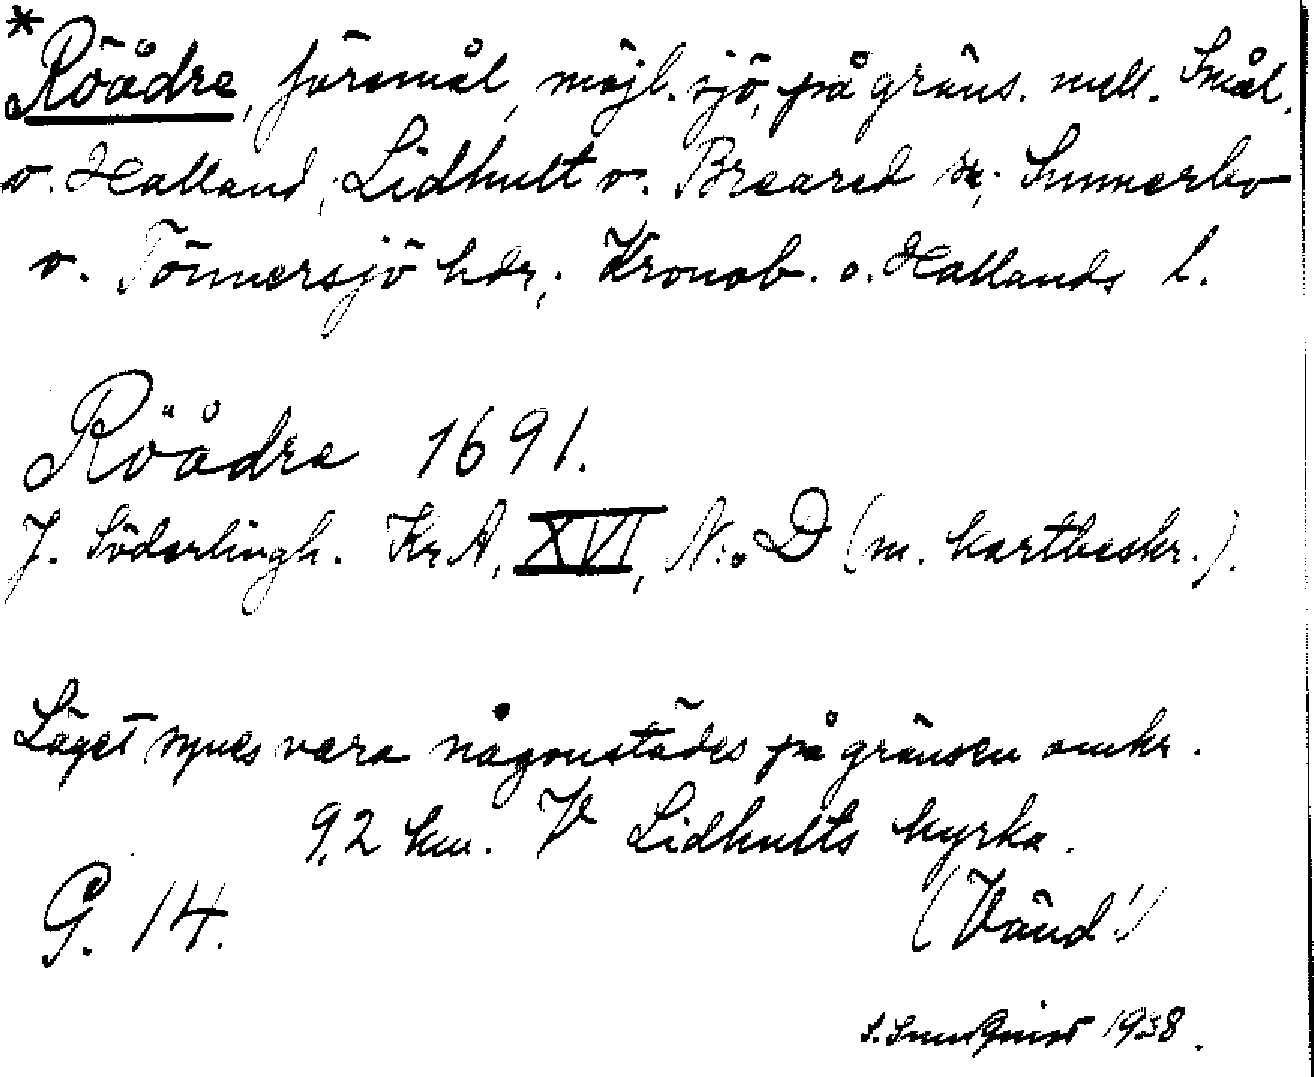 *Röådre, föremål, möjl. sjö, på gräns. mell. Smål.
o. Halland; Lidhult o. Breared sn; Sunnerbo
o. Tönnersjö hdr; Kronob. o. Hallands l.
Röådre 1691.
J. Söderlingh. KrA, XVI, N:o D (m. kartbeskr.).
Läget synes vara någonstädes på gränsen omkr.
9,2 km. V Lidhults kyrka.
G. 14.
(Vänd!)
S. Sundquist 1938.